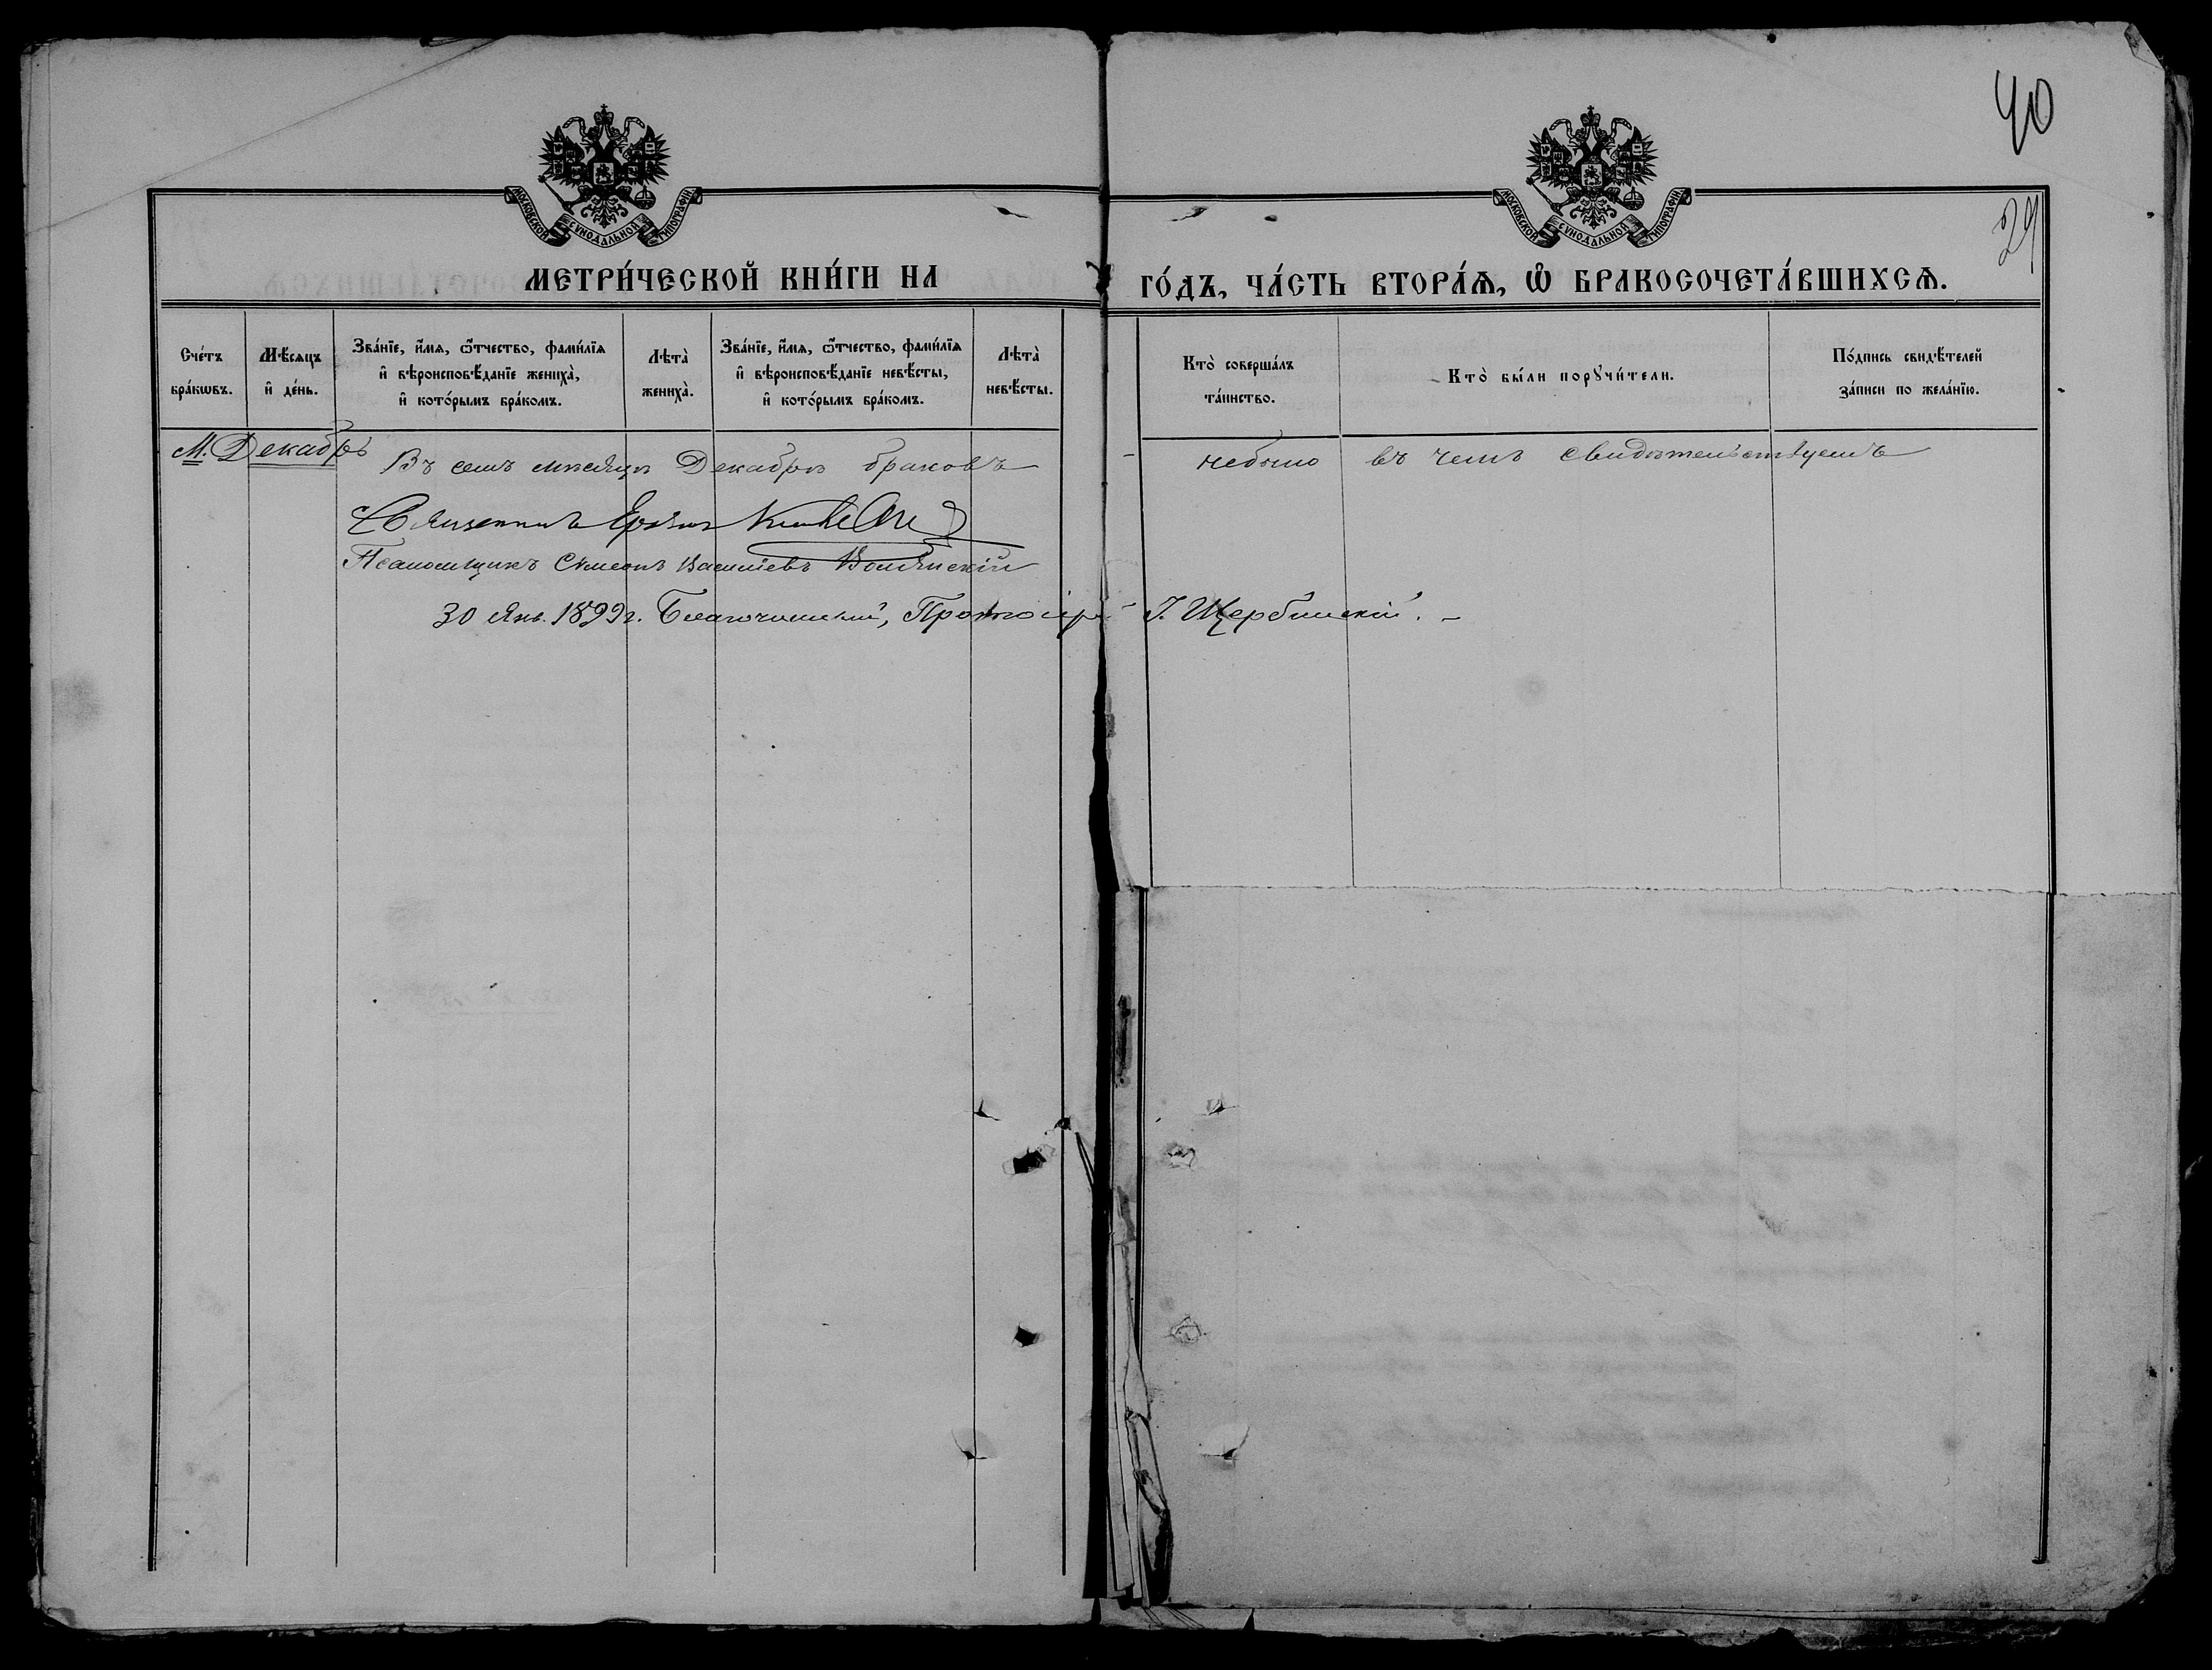 40
29
МОСКОВСКОЙ СѴНОДАЛЬНОЙ ТИПОГРАФІИ
МОСКОВСКОЙ СѴНОДАЛЬНОЙ ТИПОГРАФІИ
МЕТРИ́ЧЕСКОЙ КНИ́ГИ НА ГО́ДЪ, ЧА́СТЬ ВТОРА́Ѧ, Ѽ БРАКОСОЧЕТА́ВШИХСѦ.
Сче́тъ бра́кѡвъ.
Мѣ́сяцъ и҆ де́нь.
Зва́нїе, и҆́мя, ѻ҆́тчество, фами́лїя и҆ вѣроисповѣ́данїе жениха̀, и҆ кото́рымъ бра́комъ.
Лѣта̀ жениха̀.
Зва́нїе, и҆́мя, ѻ҆́тчество, фами́лїя и҆ вѣроисповѣ́данїе невѣ́сты, и҆ кото́рымъ бра́комъ.
Лѣта̀ невѣ́сты.
Кто̀ соверша́лъ та́инство.
Кто̀ бы́ли порꙋчи́тели.
По́дпись свидѣ́телей за́писи по жела́нїю.
М. Декабрь
Въ семъ мѣсяцѣ Декабрѣ браковъ небыло въ чемъ свидѣтельствуемъ
Священникъ
Псаломщикъ Симеонъ Васильевъ Волынскій
30 Янв. 1899г. Благочинный, Протоіер. І. Щербинскій. –